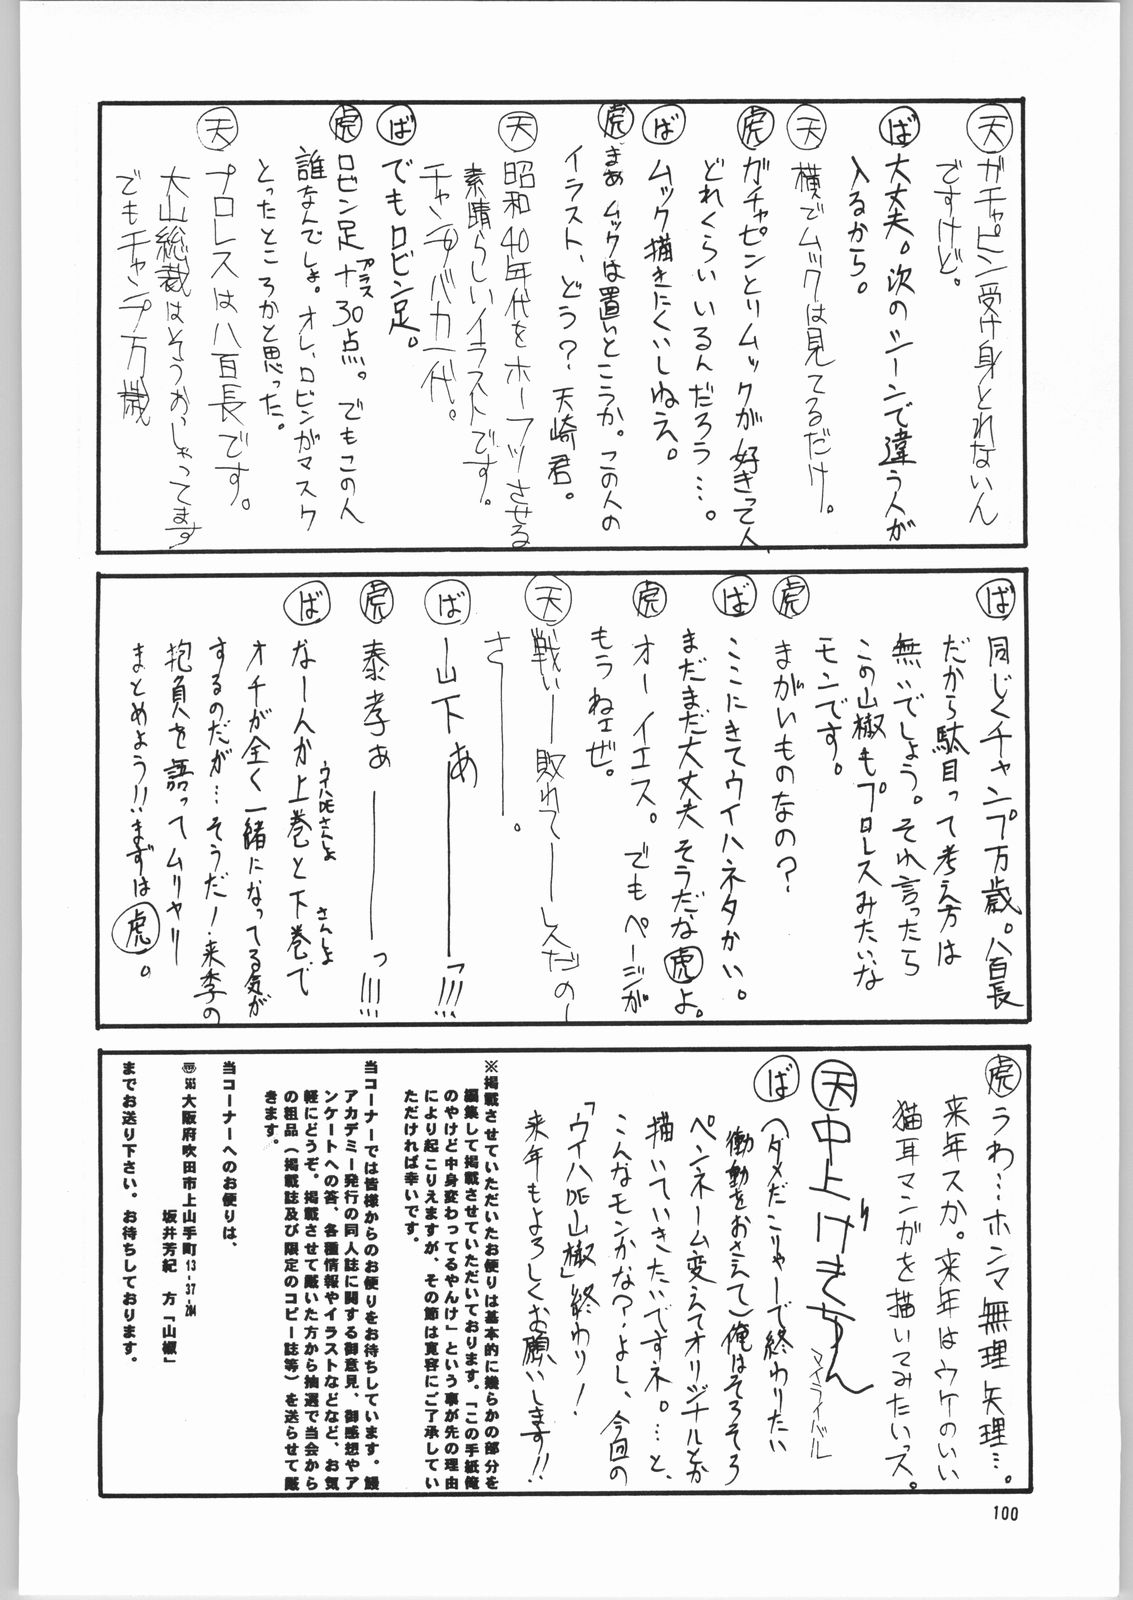 天 ガチャピン受け身とれないん
ですけど。
ば 大丈夫。次のシーンで違う人が
入るから。
天 横でムックは見てるだけ。
虎 ガチャピンとりムックが好きって人
どれくらいいるんだろう…。
ば ムック描きにくいしねえ。
虎 まぁムックは置いとこうか。この人の
イラスト、どう？天崎君。
天 昭和40年代をホーフツさせる
素晴らしいイラストです。
チャンプバカ一代。
ば でもロビン足。
虎 ロビン足+プラス30点。でもこの人
誰なんでしょ。オレ、ロビンがマスク
とったところかと思った。
天 プロレスは八百長です。
大山総裁はそうおっしゃってます
でもチャンプ万歳
ば 同じくチャンプ万歳。八百長
だから駄目って考え方は
無いでしょう。それ言ったら
この山椒もプロレスみたいな
モンです。
虎 まがいものなの？
ば ここにきてウイハネタかい。
まだまだ大丈夫そうだな虎よ。
虎 オーイエス。でもページが
もうねェぜ。
天 戦いー敗れてーーレスだのー
さ――――。
ば ー山下あ――――っ!!!
虎 泰孝ぁ――――っ!!!
ば なーんか上巻と下巻で
ウイハDEさんしょ さんしょ
オチが全く一緒になってる気が
するのだが…そうだ！来季の
抱負を語ってムリヤリ
まとめよう!!まずは虎。
虎 うわ…ホンマ無理矢理…。
来年スか。来年はウケのいい
猫耳マンガを描いてみたいっス。
天 中上げきちん
マイライバル
ば (ダメだこりゃーで終わりたい
衝動をおさえて)俺はそろそろ
ペンネーム変えてオリジナルとか
描いていきたいですネ。…と、
こんなモンかな？よし、今回の
「ウイハDE山椒」終わり！
来年もよろしくお願いします!!
※掲載させていただいたお便りは基本的に幾らかの部分を
編集して掲載させていただいております。「この手紙俺
のやけど中身変わってるやんけ」という事が先の理由
により起こりえますが、その節は寛容にご了承してい
ただければ幸いです。
当コーナーでは皆様からのお便りをお待ちしています。饅
アカデミー発行の同人誌に関する御意見、御感想やア
ンケートへの答、各種情報やイラストなどなど、お気
軽にどうぞ。掲載させて戴いた方から抽選で当会から
の粗品（掲載誌及び限定のコピー誌等）を送らせて戴
きます。
当コーナーへのお便りは、
〠565大阪府吹田市上山手町13-37-204
坂井芳紀 方「山椒」
までお送り下さい。お待ちしております。
100